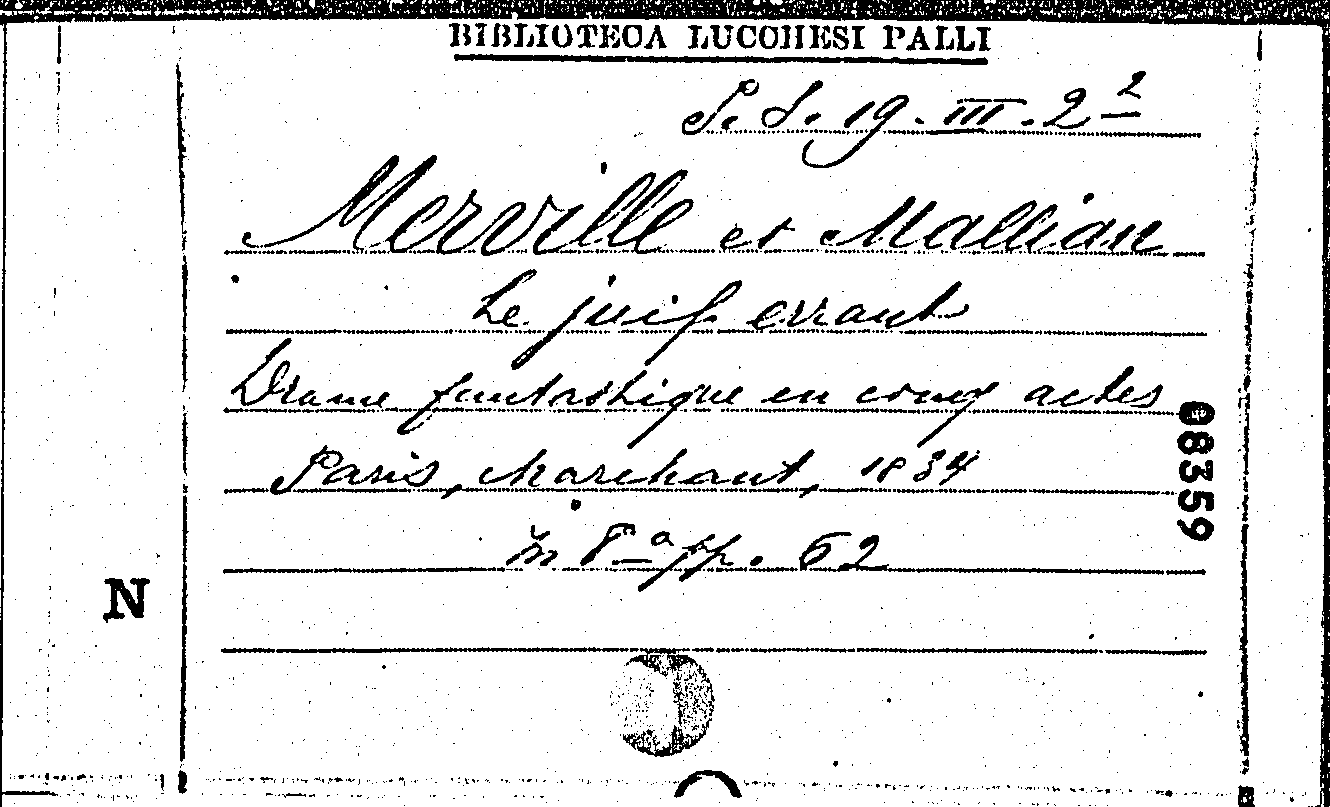 BIBLIOTECA LUCCHESI PALLI
P. S. 19. III. 2²
Merville et Mallian
Le juif errant
Drame fantastique en cinq actes
Paris, Marchant, 1834
08359
In 8º pp. 62
N